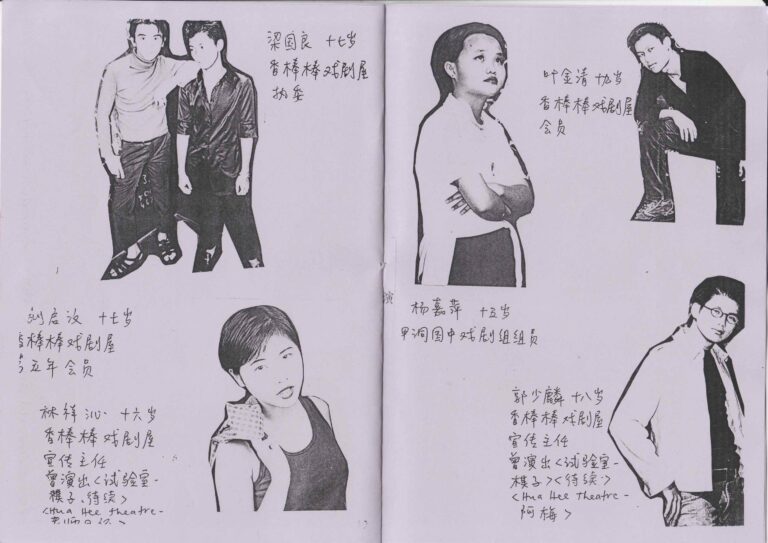 梁国良 十七岁
香棒棒戏剧屋
执委
刘启汶 十七岁
香棒棒戏剧屋
五年会员
林祥沁 十六岁
香棒棒戏剧屋
宣传主任
曾演出<试验室-
模子、待续>
<Hua Hee theatre-
叶金清 十九岁
香棒棒戏剧屋
会员
演
杨嘉萍 十五岁
甲洞国中戏剧组组员
郭少麟 十八岁
香棒棒戏剧屋
宣传主任
曾演出<试验室-
模子><待续>
<Hua Hee theatre-
阿梅>